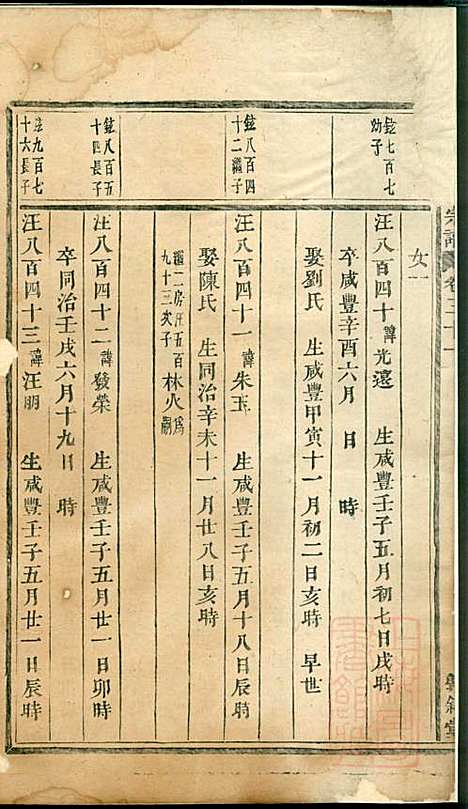 女一
鉉七百七
幼子
汪八百四十諱光遠 生咸豐壬子五月初七日戌時
卒咸豐辛酉六月 日 時
娶劉氏 生咸豐甲寅十一月初二日亥時 早世
鉉八百四
十二繼子
汪八百四十一諱朱玉 生咸豐壬子五月十八日辰時
娶陳氏 生同治辛未十一月廿八日亥時
繼二房汪五百
九十三次子
林火為嗣
鉉八百五
十四長子
汪八百四十二諱發榮 生咸豐壬子五月廿一日卯時
卒同治壬戌六月十九日 時
鉉九百七
十六長子
汪八百四十三諱汪朋 生咸豐壬子五月廿一日辰時
宗譜
卷二十一